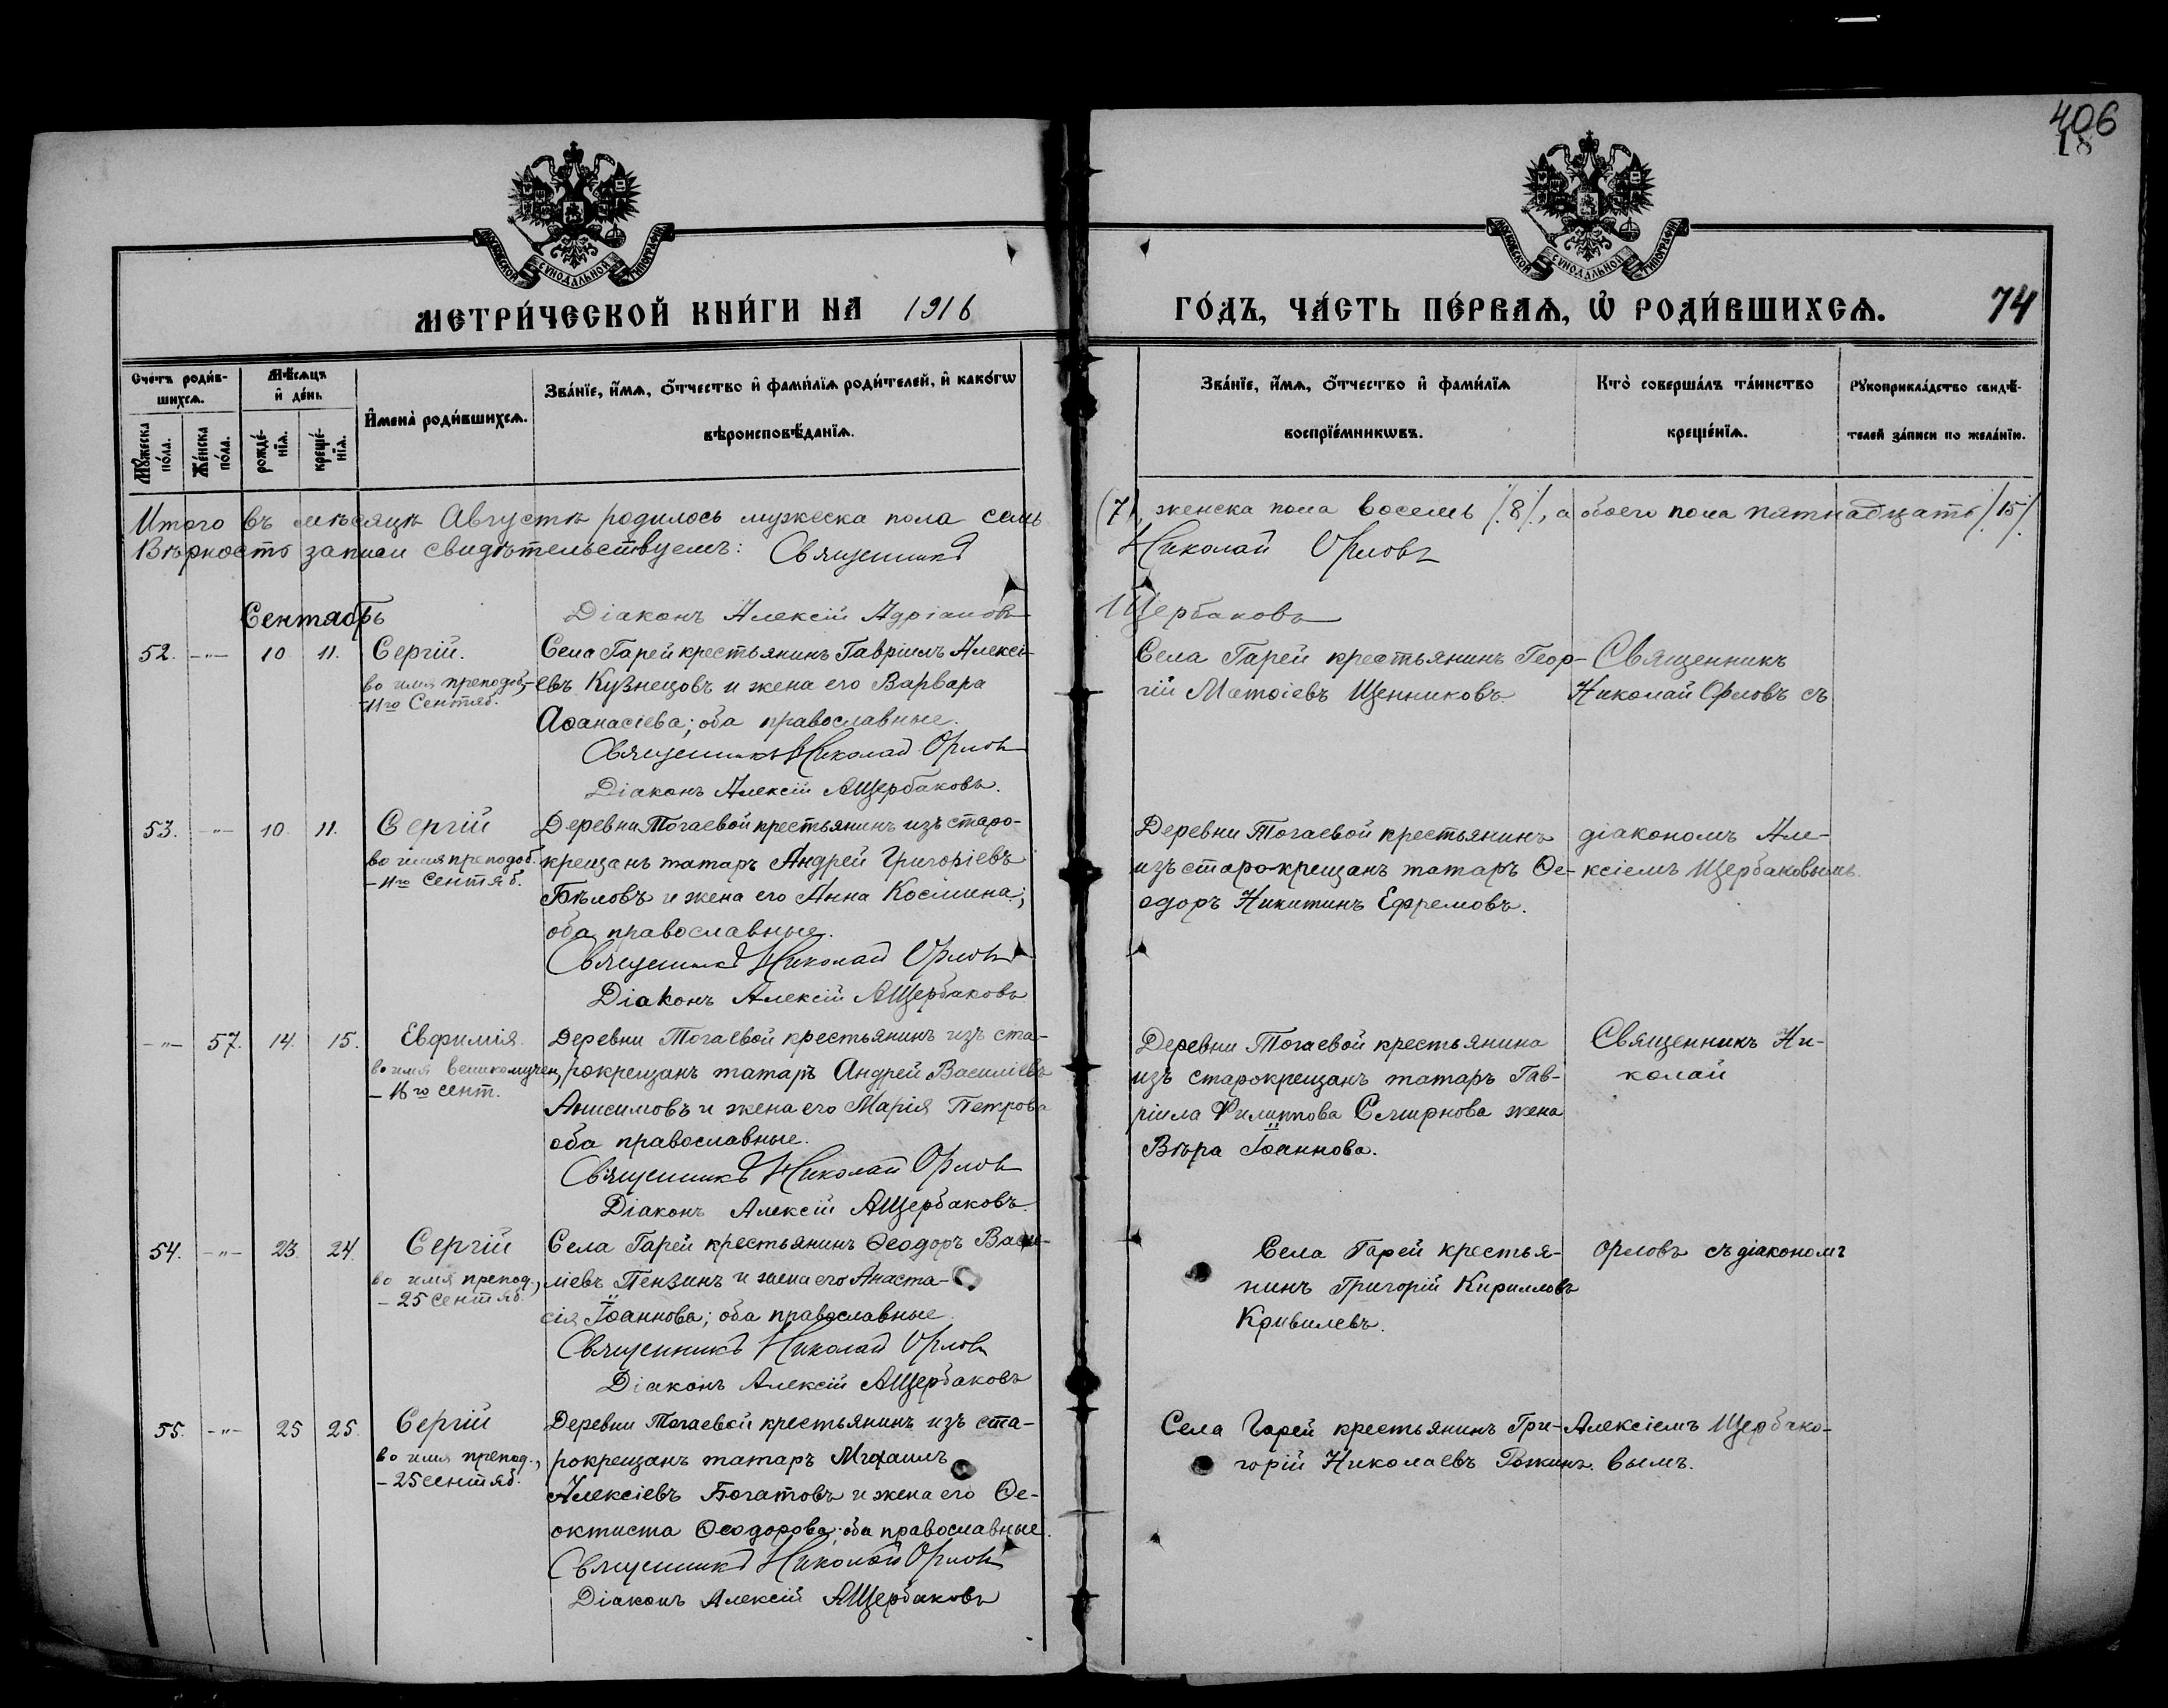 406
18
МОСКОВСКОЙ СѴНОДАЛЬНОЙ ТИПОГРАФІИ
МОСКОВСКОЙ СѴНОДАЛЬНОЙ ТИПОГРАФІИ
МЕТРИ́ЧЕСКОЙ КНИ́ГИ НА 1916
ГО́ДЪ, ЧА́СТЬ ПЕ́РВАѦ, Ѡ҆ РОДИ́ВШИХСѦ. 74
Сче́тъ роди́в-
шихсѧ.
Мѣ́сѧцъ
и҆ де́нь
Мꙋ́жеска
по́ла.
Же́нска
по́ла.
рожде́-
нїѧ.
креще́-
нїѧ.
И҆мена̀ роди́вшихсѧ.
Зва́нїе, и҆́мѧ, ѻ҆́тчество и҆ фами́лїѧ роди́телей, и҆ како́гѡ
вѣроисповѣ́данїѧ.
Зва́нїе, и҆́мѧ, ѻ҆́тчество и҆ фами́лїѧ
воспрїе́мникѡвъ.
Кто̀ соверша́лъ та́инство
креще́нїѧ.
Рꙋкоприкла́дство свидѣ́-
телей за́писи по жела́нїю.
Итого въ мѣсяцѣ Августѣ родилось мужеска пола семь
(7), женска пола восемь /.8/., а обоего пола пятнадцать /.15/.
Вѣрность записи свидѣтельствуемъ: Священникъ
Николай Орловъ
Сентябрь
Діаконъ Алексій Адріановъ
Щербаковъ
52. -"- 10 11. Сергій.
во имя преподоб,-
-11го Сентяб.
Села Гарей крестьянинъ Гавріилъ Алексі-
евъ Кузнецовъ и жена его Варвара
Аѳанасіева; оба православные.
Священникъ Николай Орловъ
Діаконъ Алексій АЩербаковъ.
Села Гарей крестьянинъ Геор-
гій Матѳіевъ Щенниковъ.
Священникъ
Николай Орловъ съ
53. -"- 10. 11. Сергій
во имя преподоб.
-11го Сентяб.
Деревни Тогаевой крестьянинъ изъ старо-
крещанъ татаръ Андрей Григоріевъ
Бѣловъ и жена его Анна Космина;
оба православные.
Священникъ Николай Орловъ
Діаконъ Алексій АЩербаковъ
Деревни Тогаевой крестьянинъ
изъ старо-крещанъ татаръ Ѳе-
одоръ Никитинъ Ефремовъ.
діакономъ Але-
ксіемъ Щербаковымъ.
-"- 57. 14. 15. Евфимія.
во имя великомучен,
- 16го сент.
Деревни Тогаевой крестьянинъ изъ ста-
рокрещанъ татаръ Андрей Василіевъ
Анисимовъ и жена его Марія Петрова
оба православные.
Священникъ Николай Орловъ
Діаконъ Алексій АЩербаковъ.
Деревни Тогаевой крестьянина
изъ старокрещанъ татаръ Гав-
ріила Филиппова Смирнова жена
Вѣра Іоаннова.
Священникъ Ни-
колай
54. -"- 23 24 Сергій
во имя препод.,
- 25 сентяб.
Села Гарей крестьянинъ Ѳеодоръ Васи-
ліевъ Пензинъ и жена его Анаста-
сія Іоаннова; оба православные.
Священникъ Николай Орловъ
Діаконъ Алексій АЩербаковъ
Села Гарей крестья-
нинъ Григорій Кирилловъ
Кривилевъ.
Орловъ съ діакономъ
55. -"- 25 25. Сергій
во имя препод.,
- 25 сентяб.
Деревни Тогаевой крестьянинъ изъ ста-
рокрещанъ татаръ Михаилъ
Алексіевъ Богатовъ и жена его Ѳе-
октиста Ѳеодорова; оба православные.
Священникъ Николай Орловъ
Діаконъ Алексій АЩербаковъ
Села Гарей крестьянинъ Гри-
горій Николаевъ
Алексіемъ Щербако-
вымъ.